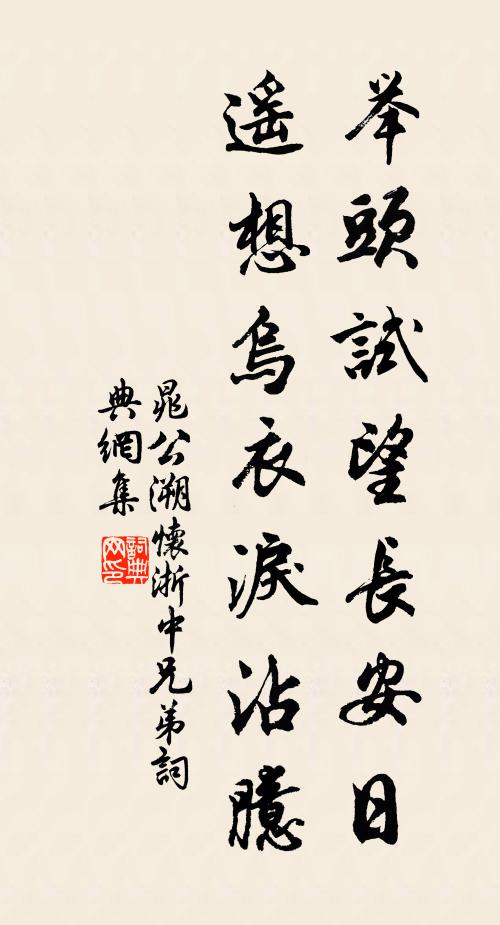 举頭試望長安日
遥想烏衣淚沾臆
晁公溯懷浙中兄弟詞
典網集
詞典网印